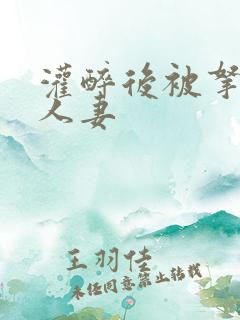 灌醉後被拏
人妻
王羽佳
未经同意禁止转载